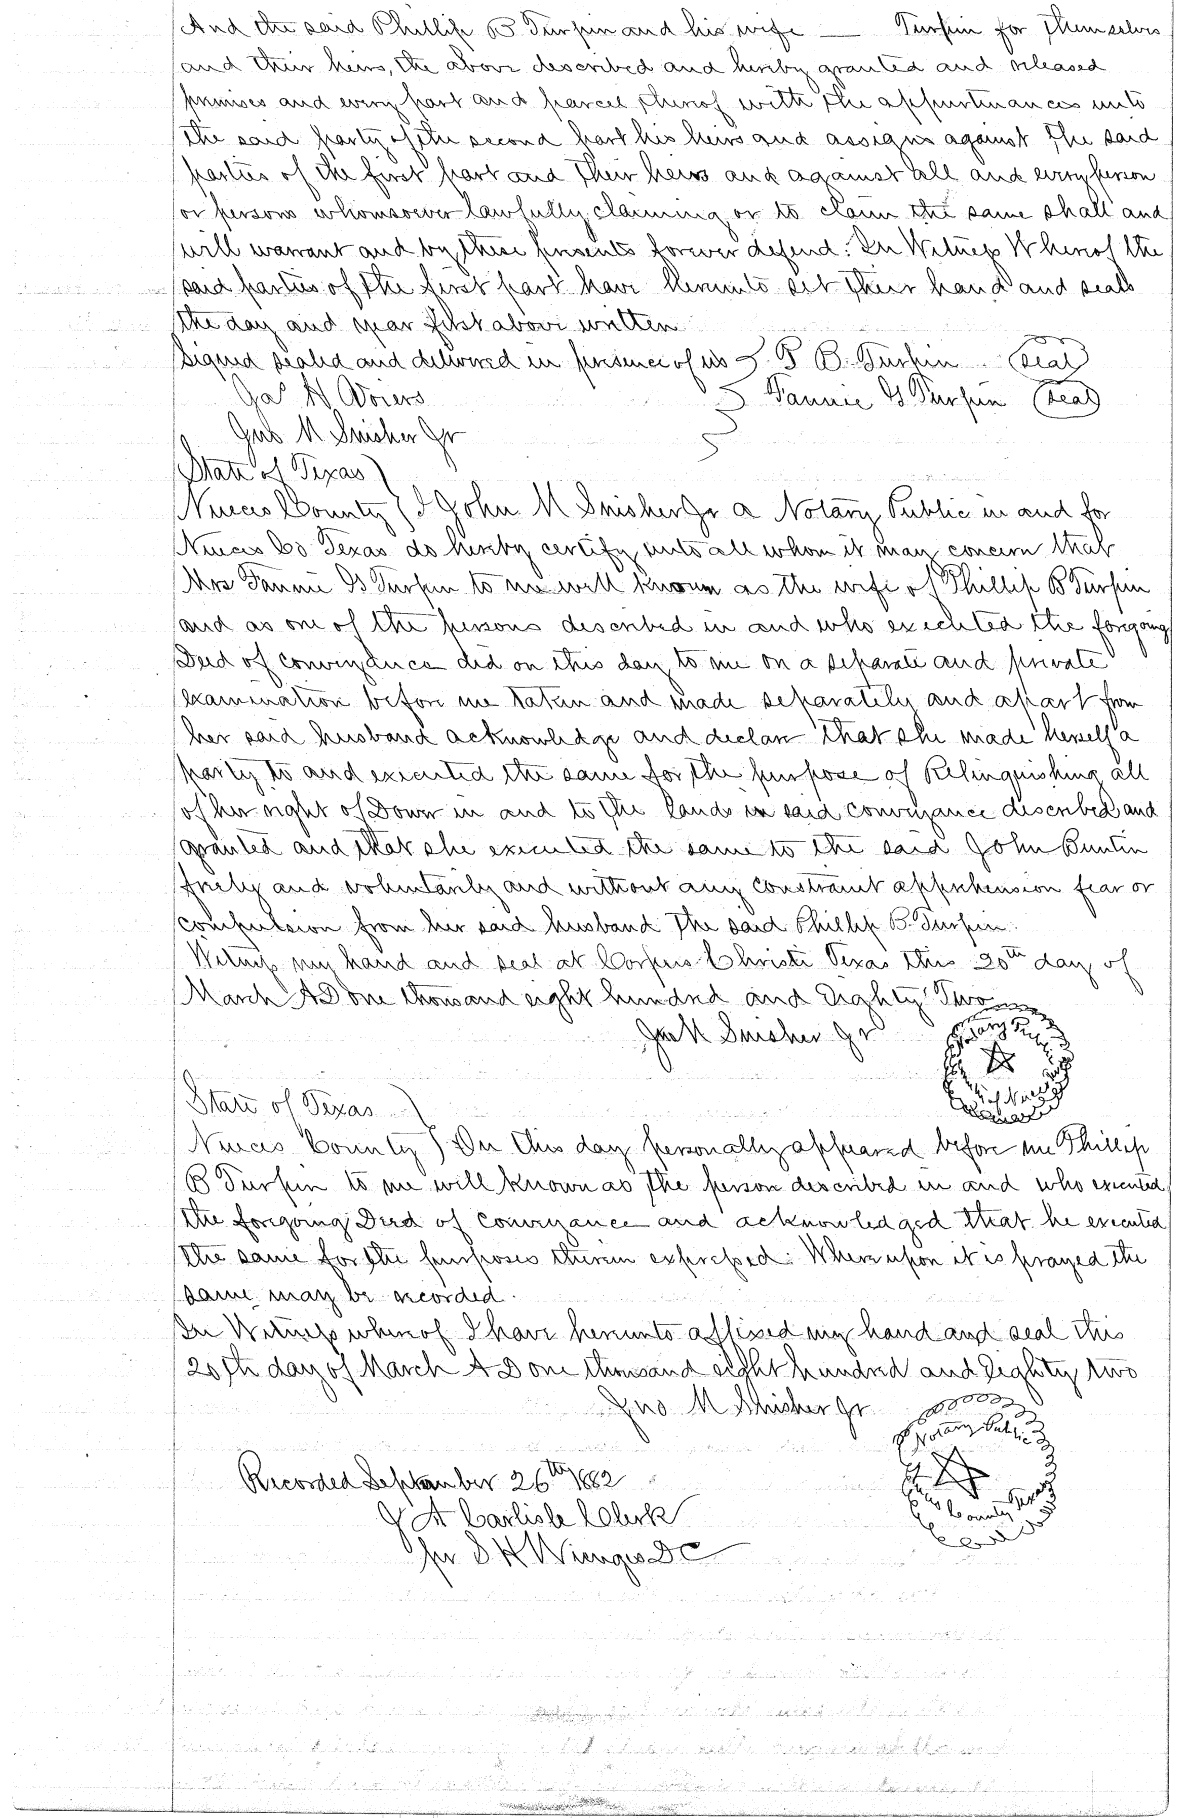 And the said Phillip B Turpin and his wife — Turpin for themselves
and their heirs, the above described and hereby granted and released
premises and every part and parcel thereof with the appurtinances unto
the said party of the second part his heirs and assigns against the said
parties of the first part and their heirs and against all and every person
or persons whomsoever lawfully claiming or to claim the same shall and
will warrant and by these presents forever defend. In Witness Whereof the
said parties of the first part have hereunto set their hand and seals
the day and year first above written
Signed sealed and delivered in presence of us P. B. Turpin (seal)
Jas H Voiers Fannie G Turpin (seal)
Jno M Swisher Jr
State of Texas )
Nueces County ) I John M Swisher Jr a Notary Public in and for
Nueces Co Texas do hereby certify unto all whom it may concern that
Mrs Fannie G Turpin to me well known as the wife of Phillip B Turpin
and as one of the persons described in and who executed the forgoing
Deed of conveyance did on this day to me on a separate and private
examination before me taken and made separately and apart from
her said husband acknowledge and declare that she made herself a
party to and executed the same for the purpose of Relinquishing all
of her right of Dower in and to the lands in said conveyance described and
granted and that she executed the same to the said John Buntin
freely and voluntarily and without any constraint apprehension fear or
compulsion from her said husband the said Phillip B. Turpin.
Witness my hand and seal at Corpus Christi Texas this 20th day of
March AD one thousand eight hundred and Eighty Two
Jno M Swisher Jr
Notary Public
State of Texas )
Nueces County ) On this day personally appeared before me Phillip
B Turpin to me well known as the person described in and who executed
the forgoing Deed of conveyance and acknowledged that he executed
the same for the purposes therein expressed. Where upon it is prayed the
same may be recorded.
In Witness whereof I have hereunto affixed my hand and seal this
20th day of March AD one thousand eight hundred and Eighty two
Jno M Swisher Jr
Notary Public
County Texas
Recorded September 26th 1882
J A Carlisle Clerk
per S H DC